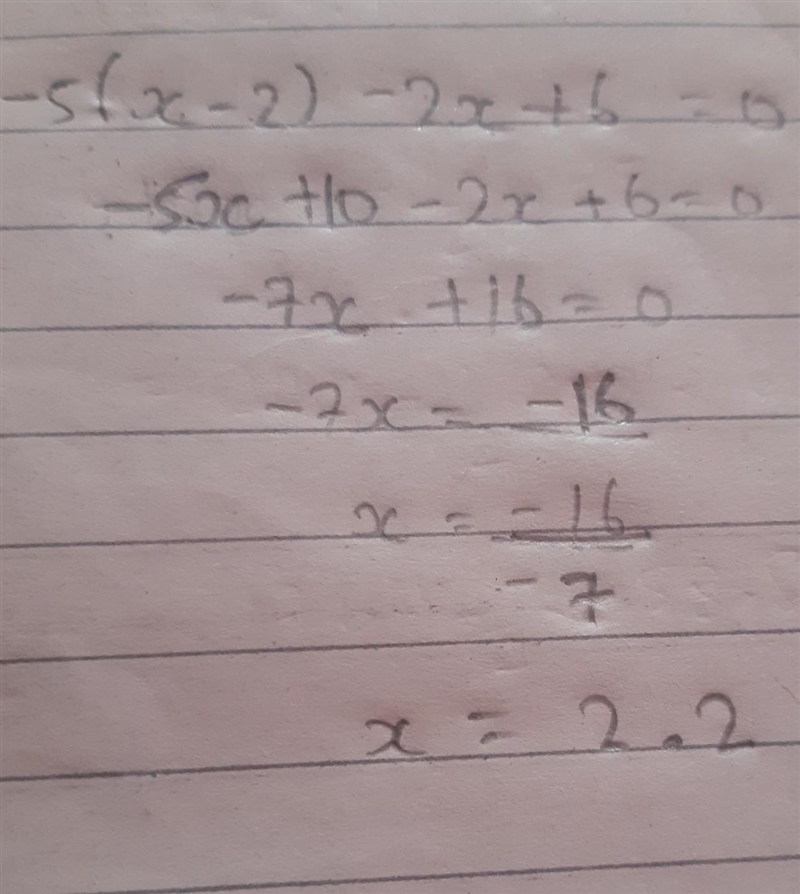 -5(x-2) -2x +6 = 0
-5x +10 -2x +6 = 0
-7x +16 = 0
-7x = -16
x = -16
-7
x = 2.2